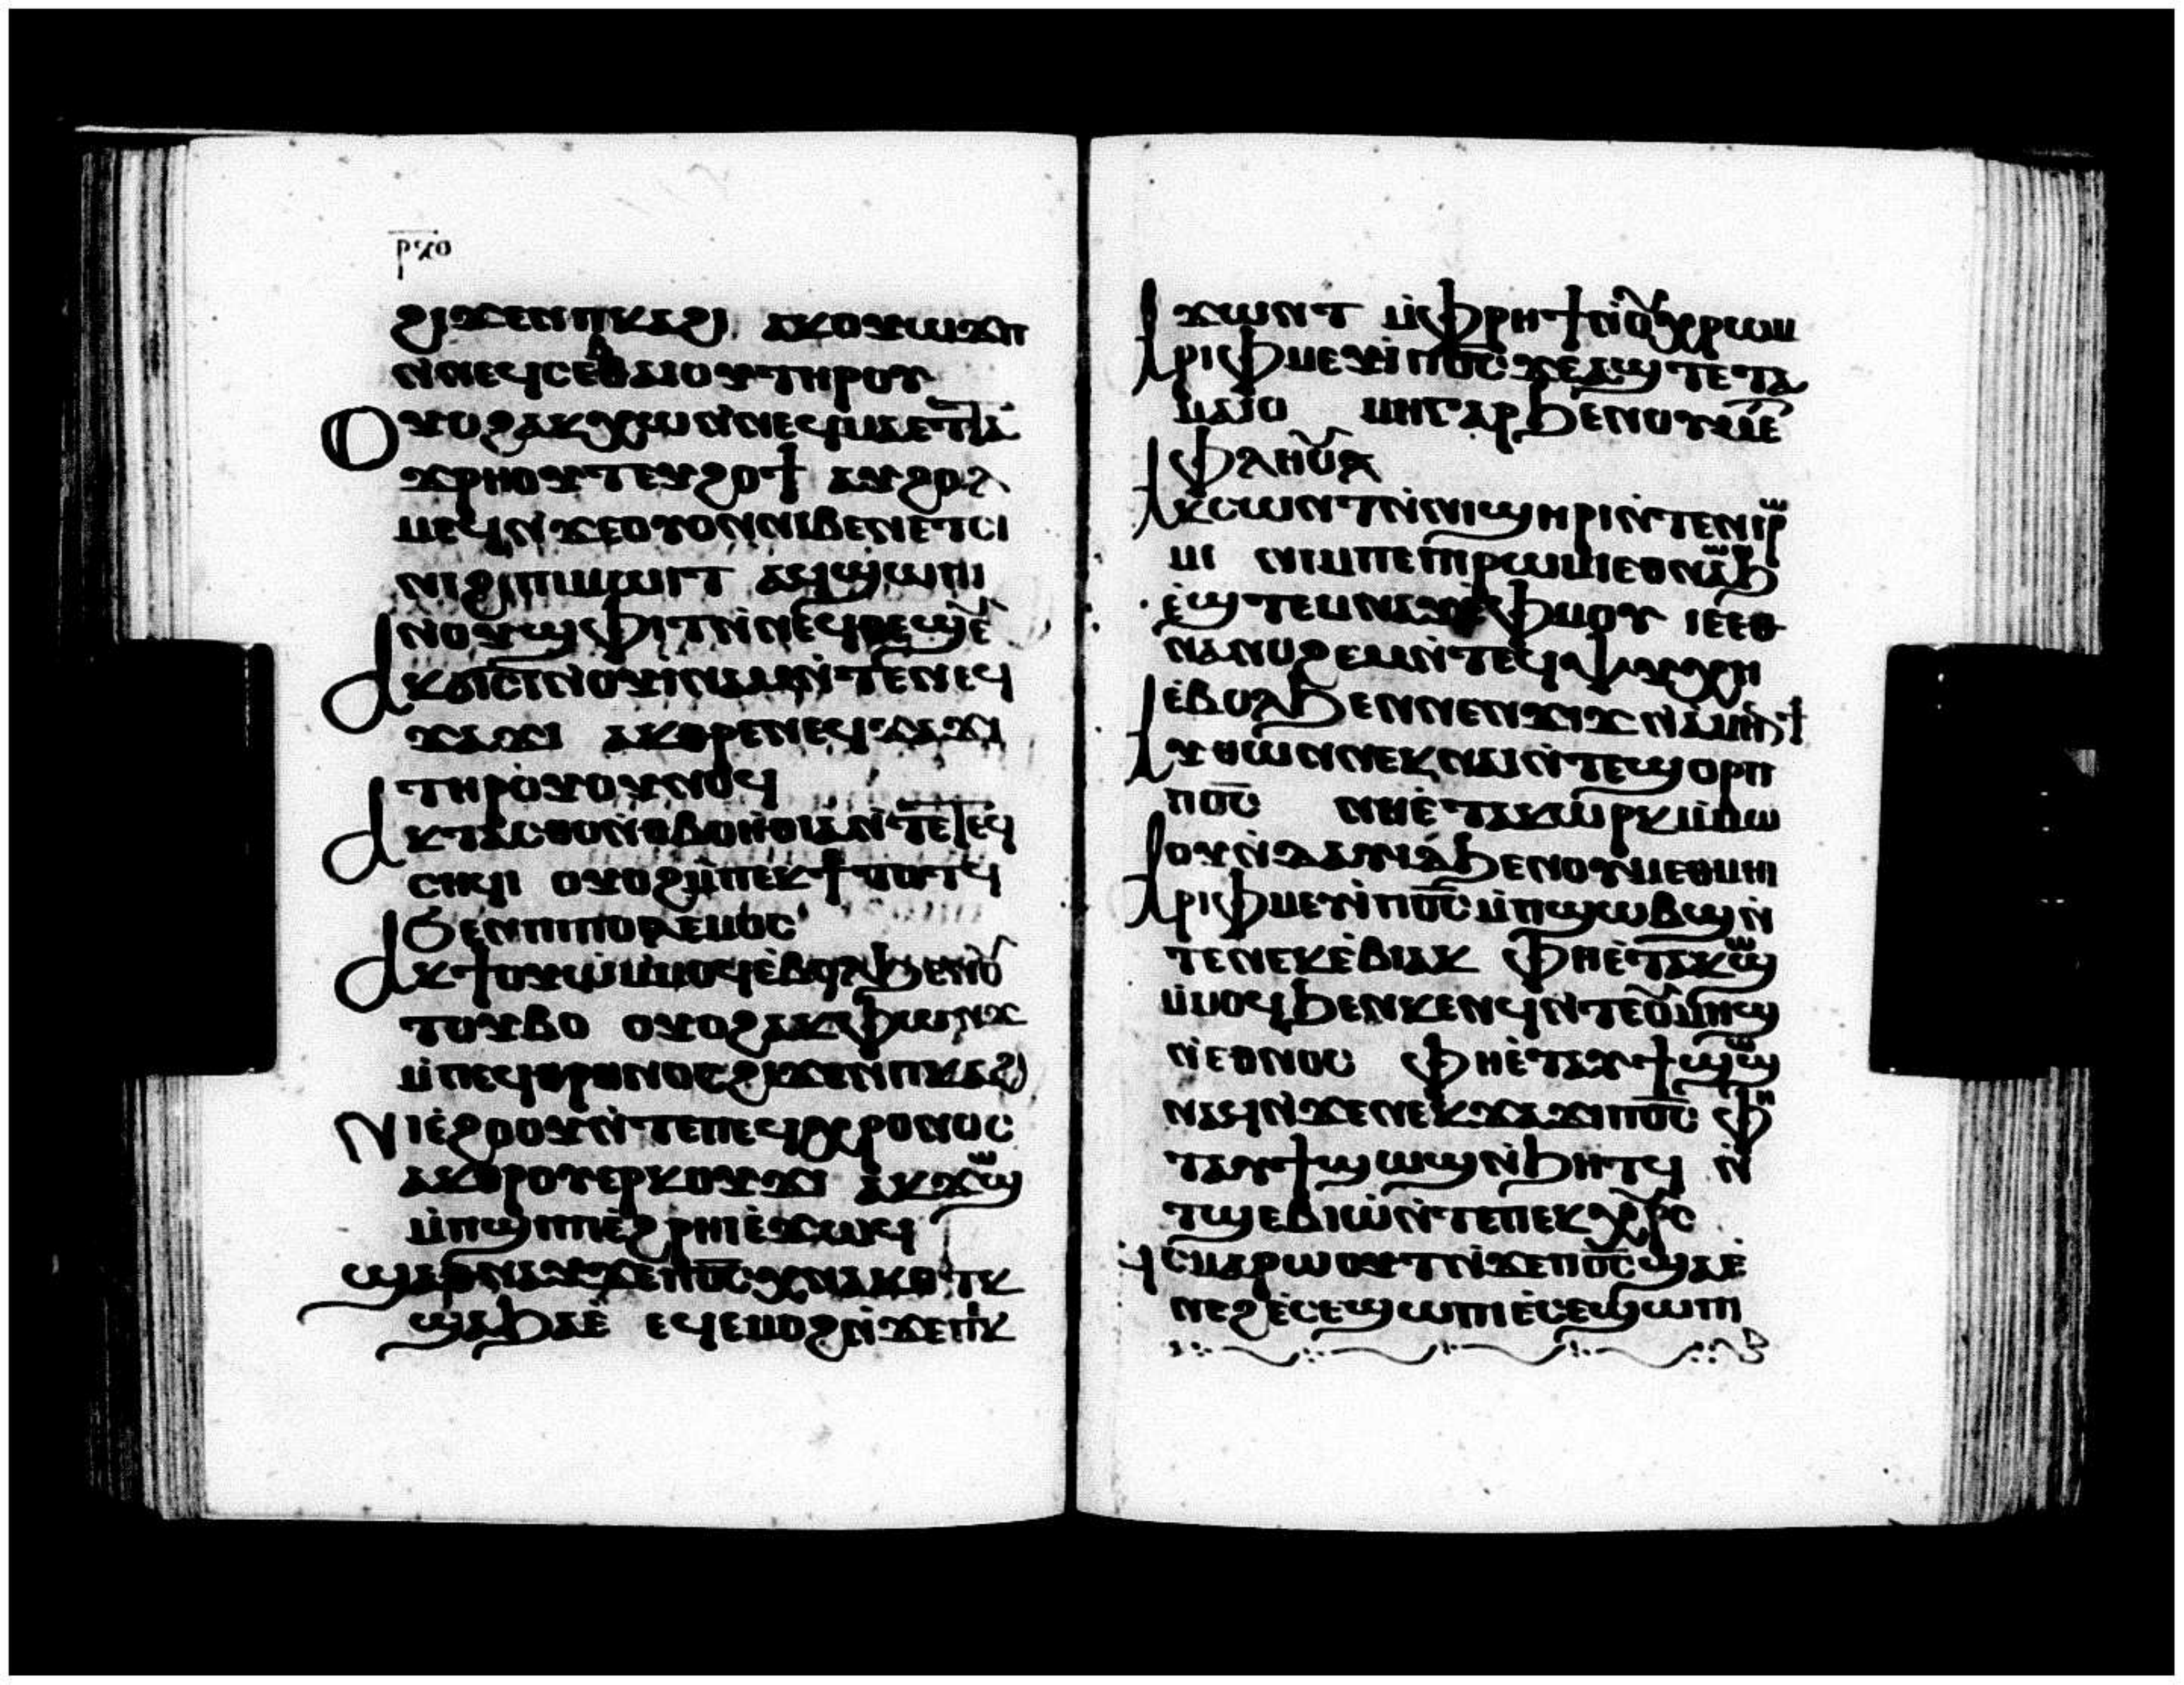 ⲣⲯⲟ
ϩⲓϫⲉⲛⲡⲕⲁϩⲓ ⲁⲕⲟⲩⲱϫⲡ
ⲛ̀ⲛⲉϥⲥⲉⲃⲑⲁⲓⲟⲩⲧⲏⲣⲟⲩ
ⲟⲩⲟϩⲁⲕⲭⲱⲛ̀ⲛⲉϥⲙⲁⲉⲧⲧⲁ
ϫⲣⲏⲟⲩⲧⲉⲩϩⲟϯ ⲁⲩϩⲟⲗ
ⲙⲉϥⲛ̀ϫⲉⲟⲩⲟⲛⲛⲓⲃⲉⲛⲉⲧⲥⲓ
ⲛⲓϩⲓⲡⲓⲙⲱⲓⲧ ⲁϥϣⲱⲡⲓ
ⲛⲟⲩϣⲫⲓⲧⲛ̀ⲛⲉϥⲑⲉϣⲉ̅
ⲁⲕϭⲓⲥⲓⲛ̀ⲟⲩⲓⲛⲁⲙⲛ̀ⲧⲉⲛⲉϥ
ϫⲁϫⲓ ⲁⲕⲑⲣⲉⲛⲉϥϫⲁϫⲓ
ⲧⲏⲣⲟⲩⲟⲩⲛⲟϥ
ⲁⲕⲧⲁⲥⲑⲟⲛ̀ⲑⲃⲟⲏⲑⲓⲁⲛ̀ⲧⲉⲧⲉϥ
ⲥⲏϥⲓ ⲟⲩⲟϩⲙ̀ⲡⲉⲕϯⲧⲟⲧϥ
ϧⲉⲛⲡⲓⲡⲟⲗⲉⲙⲟⲥ
ⲁⲕϯⲟⲩⲱⲙ̀ⲙⲟϥⲉ̀ⲃⲟⲗϧⲉⲛⲟ̅
ⲧⲟⲩⲃⲟ ⲟⲩⲟϩⲁⲕⲫⲱⲛϫ
ⲙ̀ⲡⲉϥⲑⲣⲟⲛⲟⲥϩⲓϫⲉⲛⲡⲕⲁϩⲓ
ⲛⲓⲉ̀ϩⲟⲟⲩⲛ̀ⲧⲉⲡⲉϥⲭⲣⲟⲛⲟⲥ
ⲁⲕⲑⲣⲟⲩⲉⲣⲕⲟⲩϫⲓ ⲁⲕϫⲱϣ
ⲙ̀ⲡϣⲓⲡⲓⲉ̀ϩⲣⲏⲓⲉ̀ϫⲱϥ
ϣⲁⲑⲛⲁⲩϫⲉⲡⲟ̅ⲥ̅ⲭⲛⲁⲕⲟⲧⲕ
ϣⲁϧⲁⲉ̀ ⲉϥⲉⲙⲟϩⲛ̀ϫⲉⲡⲕ
ϫⲱⲛⲧ ⲙ̀ⲫⲣⲏϯⲛ̀ⲟⲩⲭⲣⲱⲙ
ⲁⲣⲓⲫⲙⲉⲩⲓ̀ⲡⲟ̅ⲥ̅ϫⲉⲁϣⲧⲉⲧⲁ
ⲙⲁⲓⲟ ⲙⲏⲅⲁⲣϧⲉⲛⲟⲩⲙⲉ
ⲧⲉⲫⲗⲏⲟⲩ
ⲁⲕⲥⲱⲛⲧⲛ̀ⲛⲓϣⲏⲣⲓⲛ̀ⲧⲉⲛⲓⲣⲱ
ⲙⲓ ⲛⲓⲙⲡⲉⲡⲓⲣⲱⲙⲓⲉⲑⲛⲁⲱⲛϧ
ⲉ̀ϣⲧⲉⲙⲛⲁⲩⲉ̀ⲫⲙⲟⲩ ⲓⲉⲉⲑ
ⲛⲁⲛⲟϩⲉⲙⲛ̀ⲧⲉϥⲯⲩⲭⲏ
ⲉ̀ⲃⲟⲗϧⲉⲛⲛⲉⲛϫⲓϫⲛ̀ⲁⲙⲉⲛϯ
ⲁⲩⲑⲱⲛⲛⲉⲕⲛⲁⲓⲛ̀ⲧⲉϣⲟⲣⲡ
ⲡⲟ̅ⲥ̅ ⲛⲏⲉ̀ⲧⲁⲕⲱⲣⲕⲙ̀ⲙⲱ
ⲟⲩⲛ̀ⲇⲁⲩⲓⲇϧⲉⲛⲟⲩⲙⲉⲑⲙⲏⲓ
ⲁⲣⲓⲫⲙⲉⲩⲓ̀ⲡⲟ̅ⲥ̅ⲙ̀ⲡϣⲱⲃϣⲛ̀
ⲧⲉⲛⲉⲕⲉ̀ⲃⲓⲁⲓⲕ ⲫⲏⲉ̀ⲧⲁⲕϣⲱ
ⲙ̀ⲙⲟϥϧⲉⲛⲕⲉⲛϥⲛ̀ⲧⲉⲟⲩⲙⲏϣ
ⲛ̀ⲉⲑⲛⲟⲥ ⲫⲏⲉ̀ⲧⲁⲩϯϣⲱϣ
ⲛⲁϥⲛ̀ϫⲉⲛⲉⲕϫⲁϫⲓⲡⲟ̅ⲥ̅ ⲫⲏ
ⲧⲁⲩϯϣⲱϣⲛ̀ϧⲏⲧϥ ⲛ̀
ⲧϣⲉⲃⲓⲱ̀ⲛ̀ⲧⲉⲡⲉⲕⲭ̅ⲣ̅ⲥ̅
ϥⲥⲙⲁⲣⲱⲟⲩⲧⲛ̀ϫⲉⲡⲟ̅ⲥ̅ϣⲁⲉ̀
ⲛⲉϩⲉ̀ⲥⲉϣⲱⲡⲓⲉ̀ⲥⲉϣⲱⲡⲓ